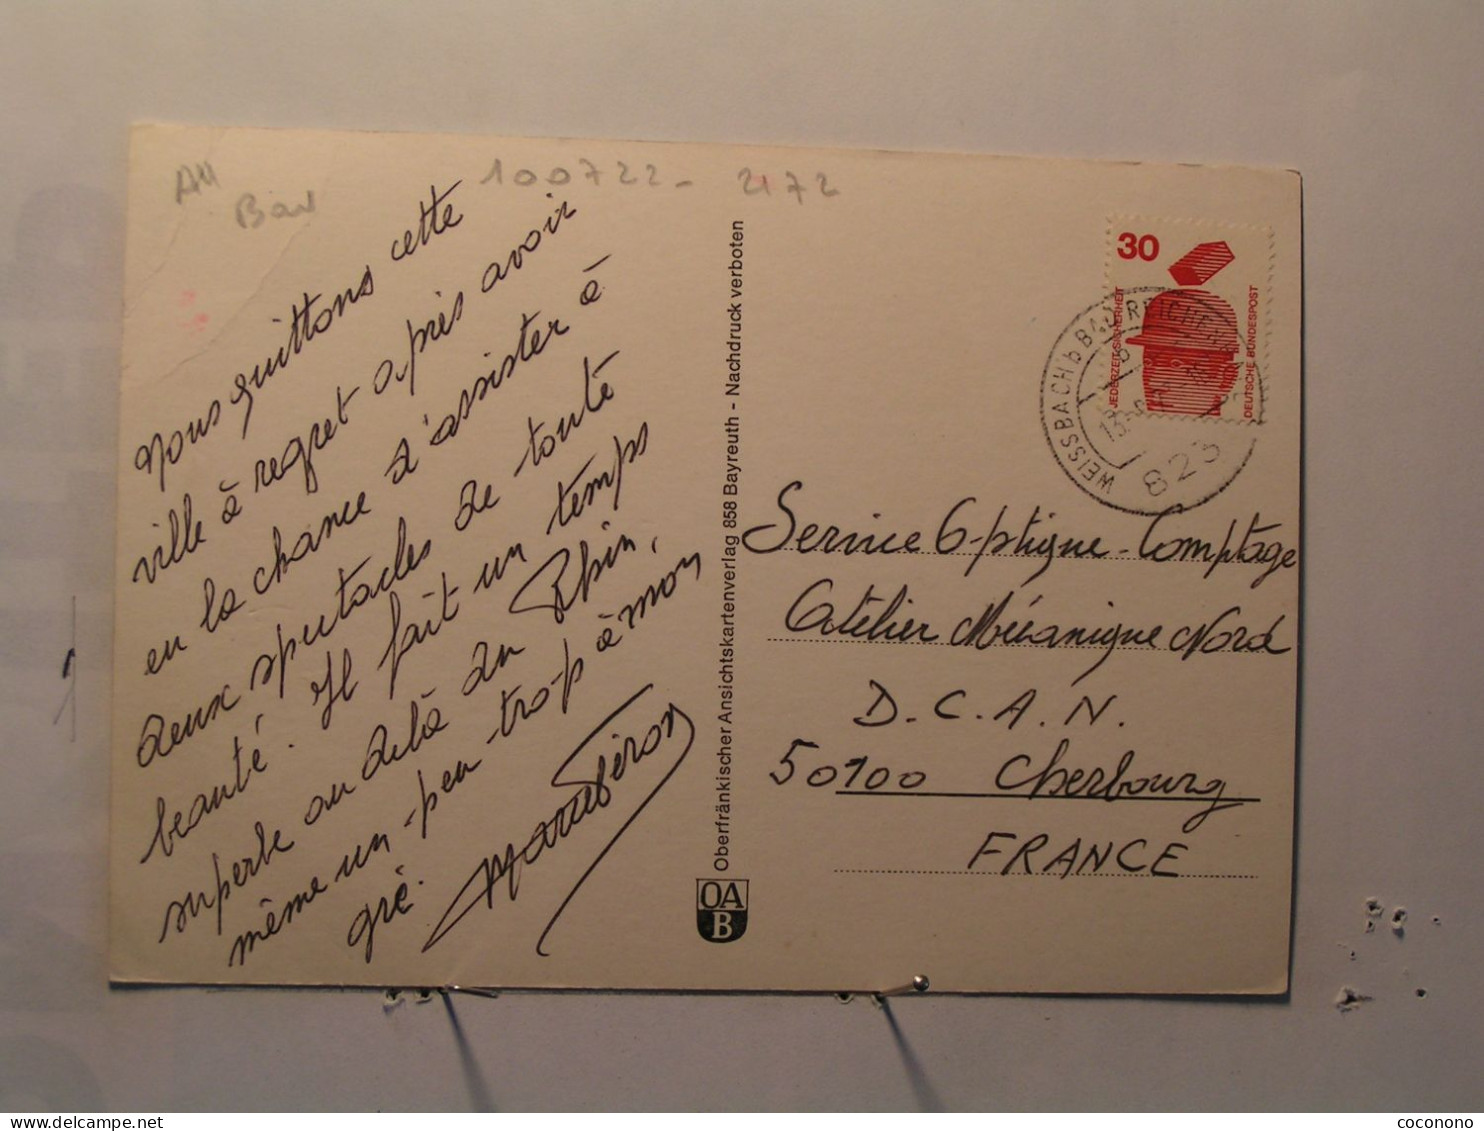 All
Bav
100722-
2172
nous quittons cette
ville à regret après avoir
eu la chance d'assister à
deux spectacles de toute
beauté. Il fait un temps
superbe au delà du Rhin,
même un peu trop à mon
gré.
Oberfränkischer Ansichtskartenverlag 858 Bayreuth - Nachdruck verboten
OA
B
30
JEDERZEIT SICHERHEIT
DEUTSCHE BUNDESPOST
WEISSBACH b BAD REICHENHALL
823
Service Optique-Comptage
Atelier Mécanique Nord
D.C.A.N.
50100 Cherbourg
FRANCE
coconono